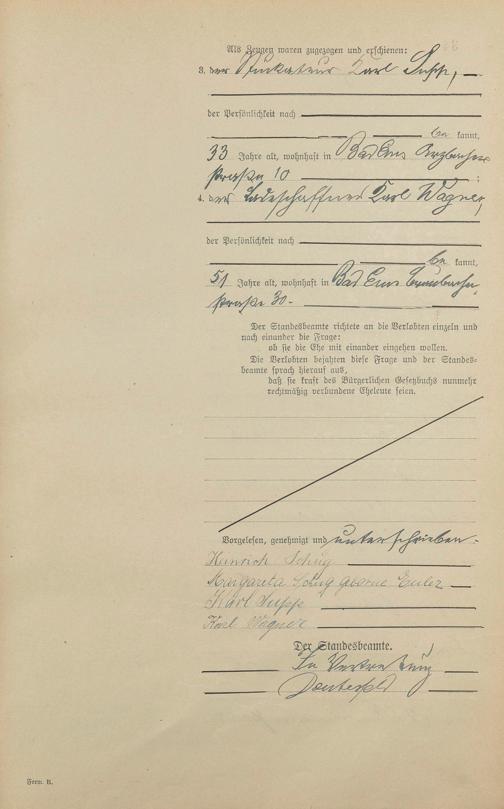 Als Zeugen waren zugezogen und erschienen:
3. der Stukateur Karl
der Persönlichkeit nach
be kannt,
33 Jahre alt, wohnhaft in Bad Ems Arzbacher
straße 10 ;
4. der Badeschaffner Karl Wagner,
der Persönlichkeit nach
be kannt,
51 Jahre alt, wohnhaft in Bad Ems
straße 30.
Der Standesbeamte richtete an die Verlobten einzeln und
nach einander die Frage:
ob sie die Ehe mit einander eingehen wollen.
Die Verlobten bejahten diese Frage und der Standes-
beamte sprach hierauf aus,
daß sie kraft des Bürgerlichen Gesetzbuchs nunmehr
rechtmäßig verbundene Eheleute seien.
Vorgelesen, genehmigt und unterschrieben.
Heinrich Schug
Margareta Schug geborne Euler
Karl
Karl Wagner
Der Standesbeamte.
In Vertretung
Form. B.